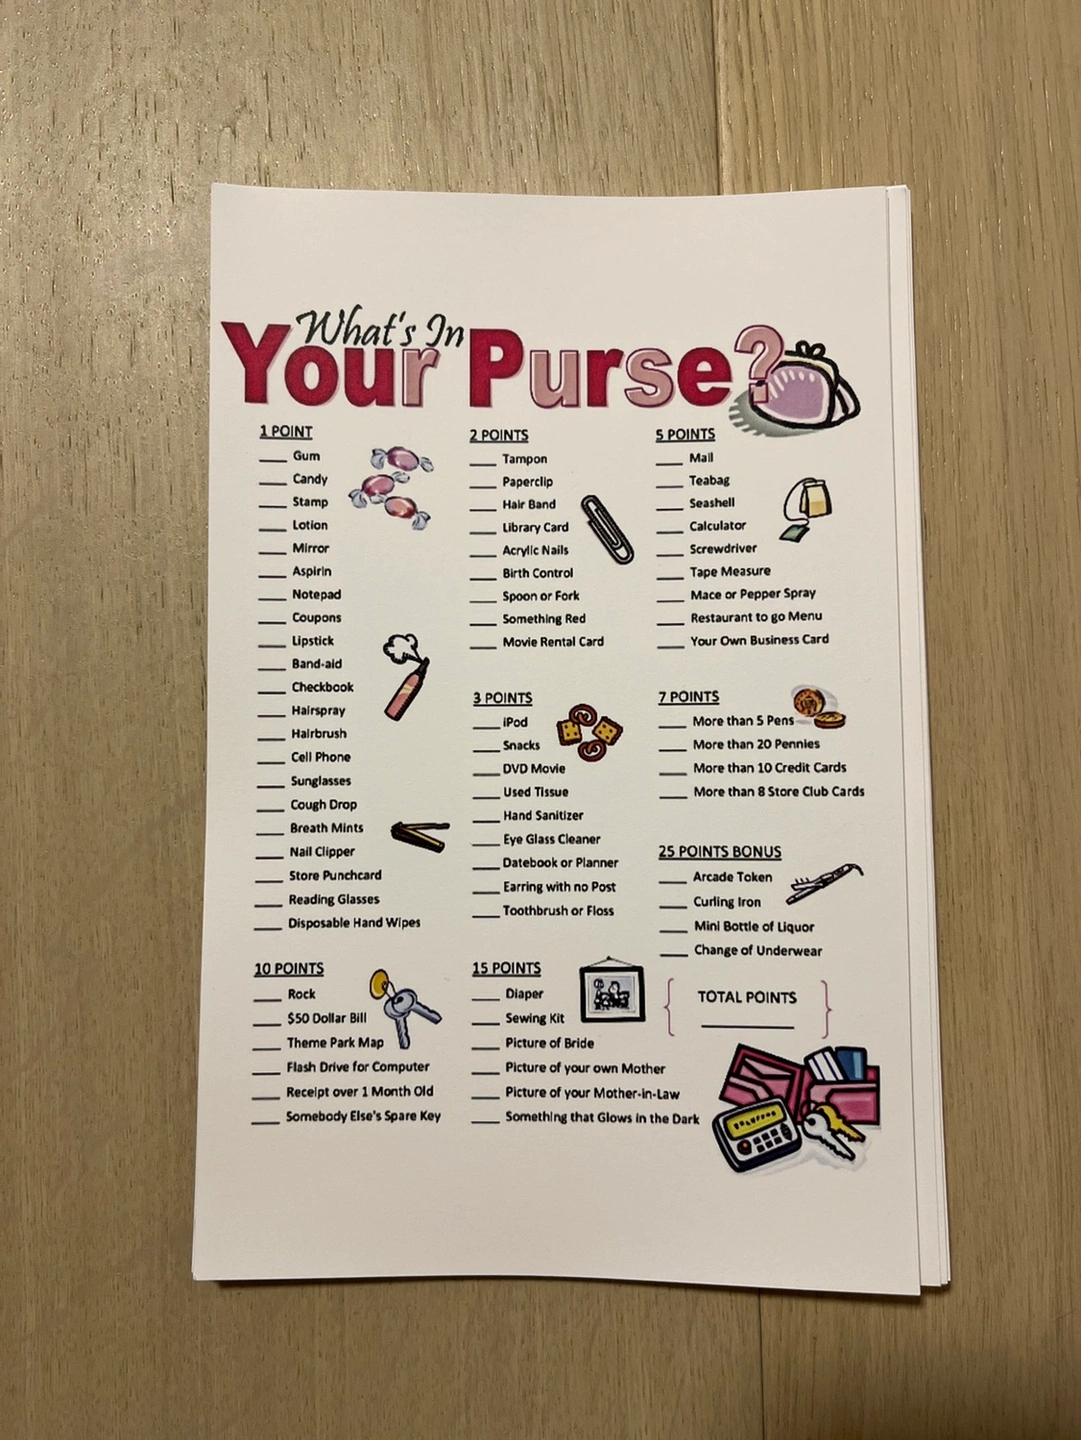 What's In
Your Purse?
1 POINT
___ Gum
___ Candy
___ Stamp
___ Lotion
___ Mirror
___ Aspirin
___ Notepad
___ Coupons
___ Lipstick
___ Band-aid
___ Checkbook
___ Hairspray
___ Hairbrush
___ Cell Phone
___ Sunglasses
___ Cough Drop
___ Breath Mints
___ Nail Clipper
___ Store Punchcard
___ Reading Glasses
___ Disposable Hand Wipes
2 POINTS
___ Tampon
___ Paperclip
___ Hair Band
___ Library Card
___ Acrylic Nails
___ Birth Control
___ Spoon or Fork
___ Something Red
___ Movie Rental Card
3 POINTS
___ iPod
___ Snacks
___ DVD Movie
___ Used Tissue
___ Hand Sanitizer
___ Eye Glass Cleaner
___ Datebook or Planner
___ Earring with no Post
___ Toothbrush or Floss
5 POINTS
___ Mail
___ Teabag
___ Seashell
___ Calculator
___ Screwdriver
___ Tape Measure
___ Mace or Pepper Spray
___ Restaurant to go Menu
___ Your Own Business Card
7 POINTS
___ More than 5 Pens
___ More than 20 Pennies
___ More than 10 Credit Cards
___ More than 8 Store Club Cards
25 POINTS BONUS
___ Arcade Token
___ Curling Iron
___ Mini Bottle of Liquor
___ Change of Underwear
10 POINTS
___ Rock
___ $50 Dollar Bill
___ Theme Park Map
___ Flash Drive for Computer
___ Receipt over 1 Month Old
___ Somebody Else's Spare Key
15 POINTS
___ Diaper
___ Sewing Kit
___ Picture of Bride
___ Picture of your own Mother
___ Picture of your Mother-in-Law
___ Something that Glows in the Dark
TOTAL POINTS